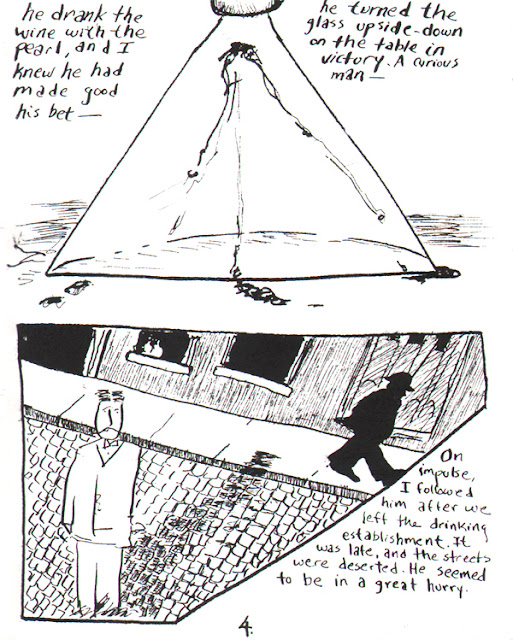 he drank the
wine with the
pearl, and I
knew he had
made good
his bet—
he turned the
glass upside-down
on the table in
victory. A curious
man—
On
impulse,
I followed
him after we
left the drinking
establishment. It
was late, and the streets
were deserted. He seemed
to be in a great hurry.
4.